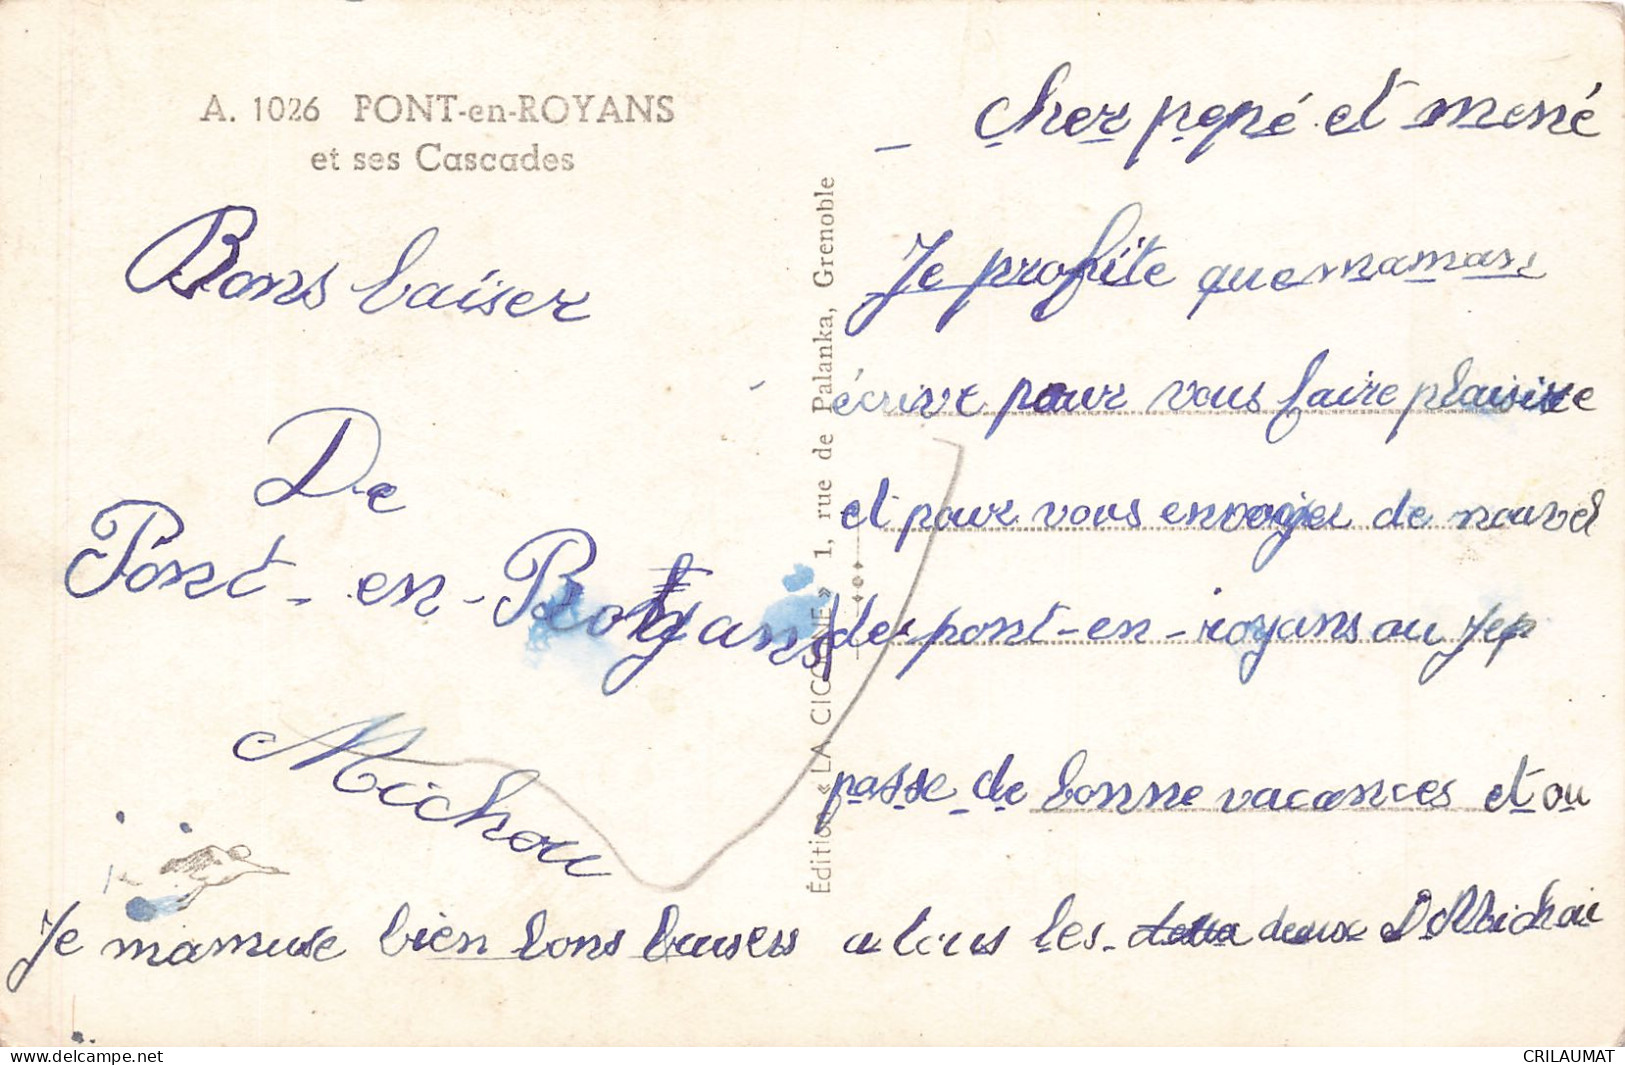 A. 1026 PONT-en-ROYANS
et ses Cascades
Bons baiser
De
Pont-en-Royans
Michou
Éditions « LA CIGOGNE » 1, rue de Palanka, Grenoble
cher pepé et mené
Je profite que maman
écrive pour vous faire plaisire
et pour vous envoyer de nouvel
de pont-en-royans ou jep
passe de bonne vacances et ou
Je mamuse bien bons baisers a tous les deux Michou
delcampe.net
CRILAUMAT